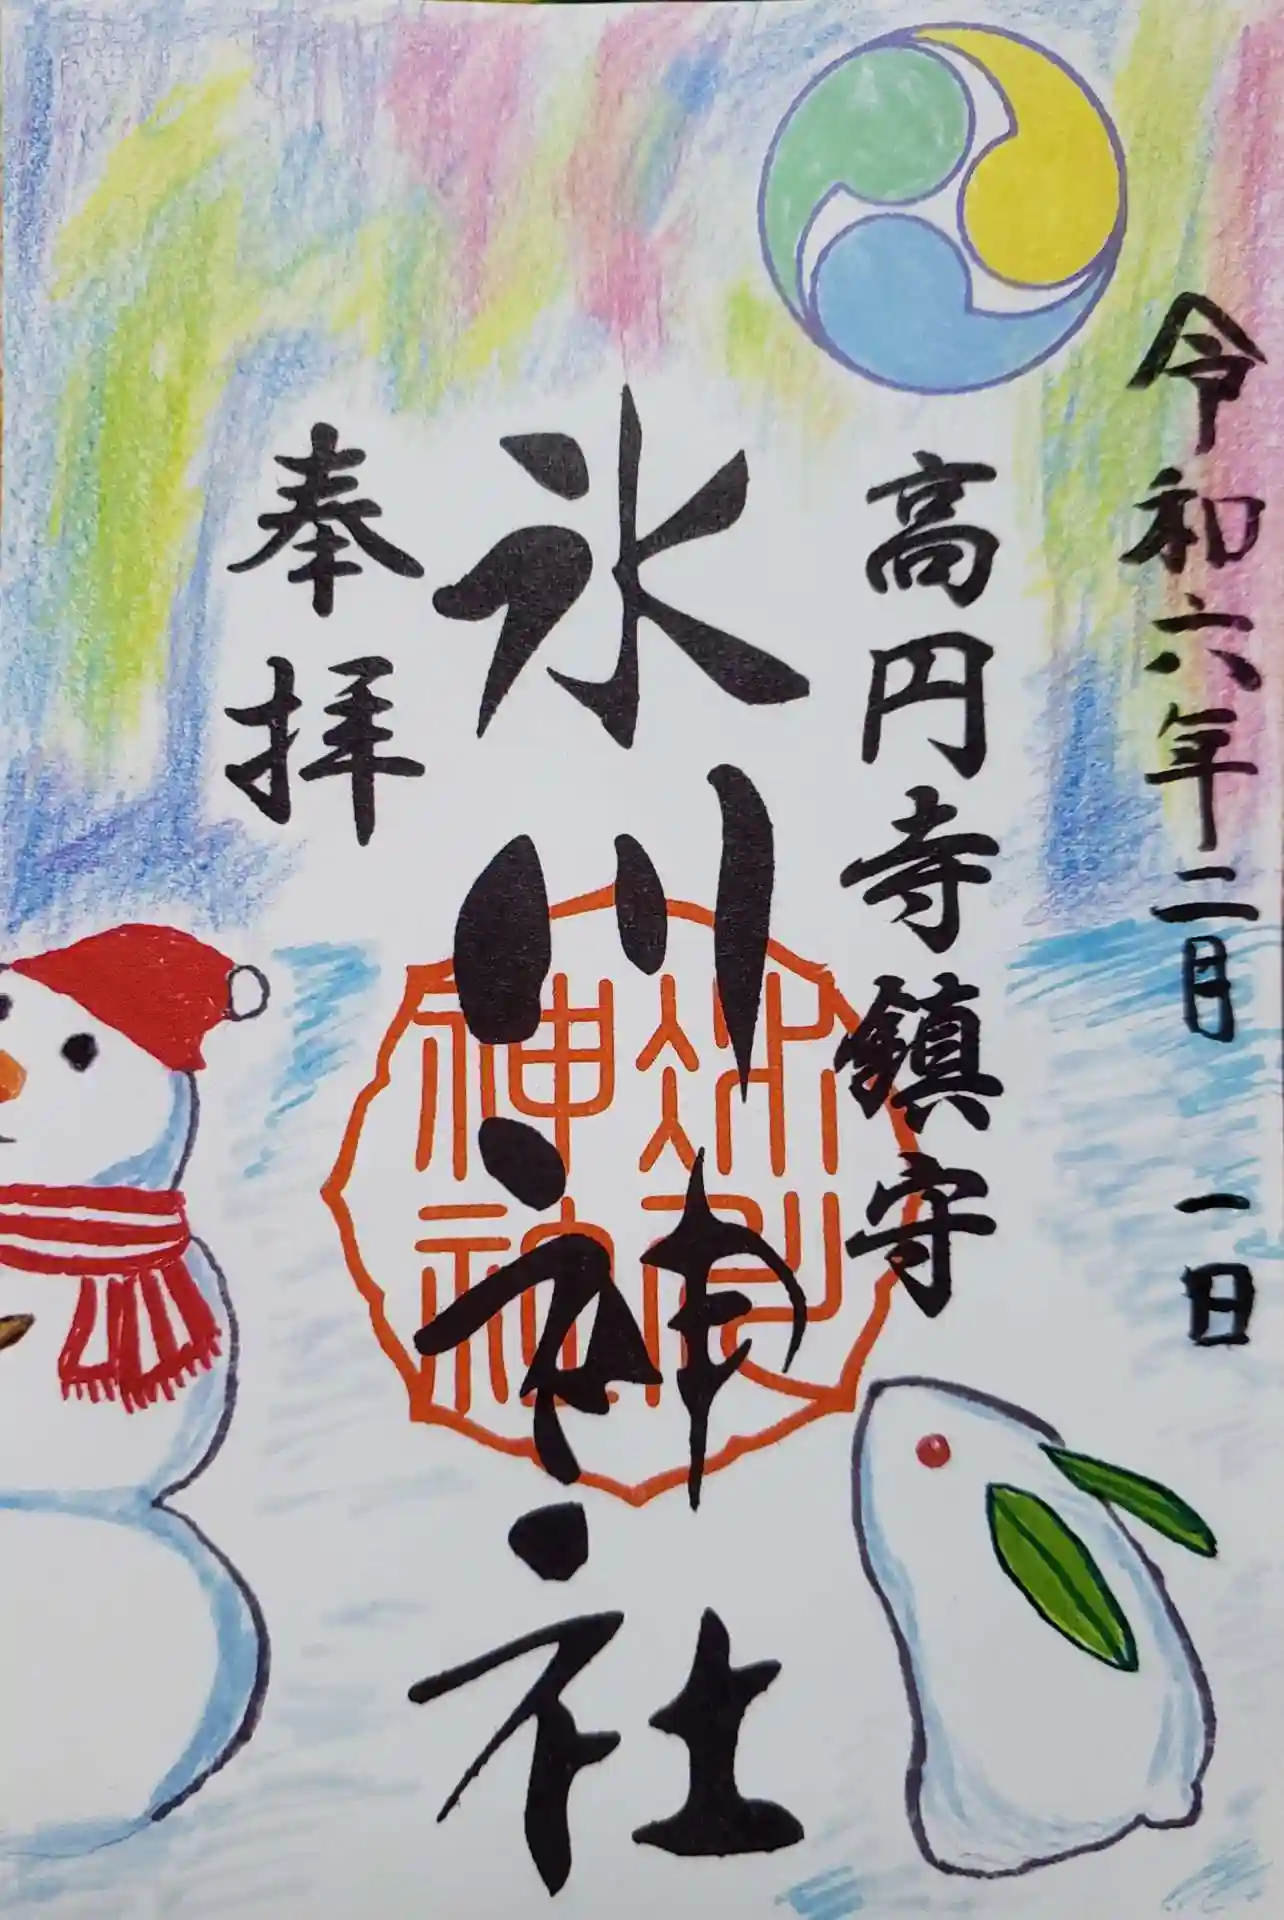 令和六年二月一日
高円寺鎮守
氷川神社
奉拝